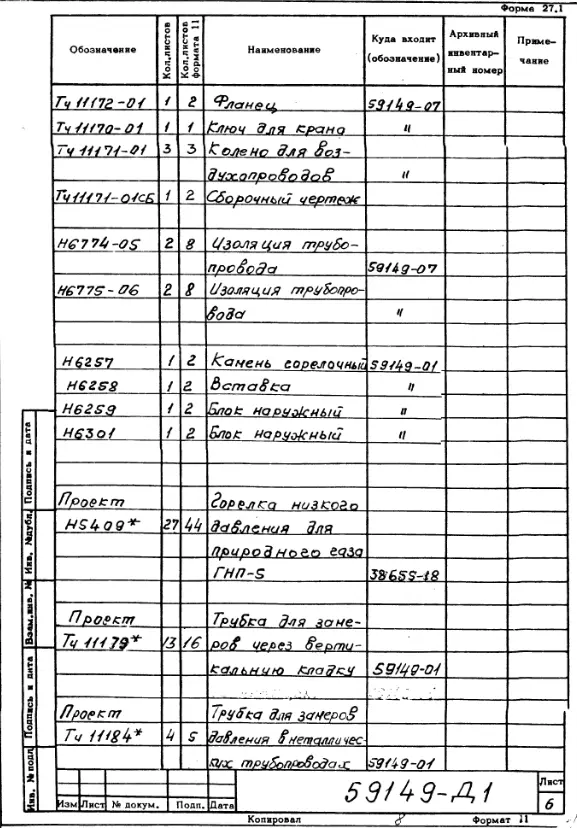 Форма 27.1
Обозначение Кол.листов Кол.листов формата 11 Наименование Куда входит (обозначение) Архивный инвентар- ный номер Приме- чание
Тч 11172-01 1 2 Фланец 59149-07
Тч 11170-01 1 1 Ключ для крана "
Тч 11171-01 3 3 Колено для воз-
духопроводов "
Тч 11171-01СБ 1 2 Сборочный чертеж
Н6774-05 2 8 Изоляция трубо-
провода 59149-07
Н6775-06 2 8 Изоляция трубопро-
вода "
Н6257 1 2 Камень горелочный 59149-01
Н6258 1 2 Вставка "
Н6259 1 2 Блок наружный "
Н6301 1 2 Блок наружный "
Проект Горелка низкого
Н5409* 27 44 давления для
природного газа
ГНП-5 38655-18
Проект Трубка для заме-
Тч 11179* 13 16 ров через верти-
кальную кладку 59149-01
Проект Трубка для замеров
Тч 11184* 4 5 давления в металличес-
ких трубопроводах 59149-01
Инв. № подл. Подпись и дата Взам.инв. № Инв. №дубл. Подпись и дата
59149-Д1
Лист
6
Изм Лист № докум. Подп. Дата
Копировал Формат 11